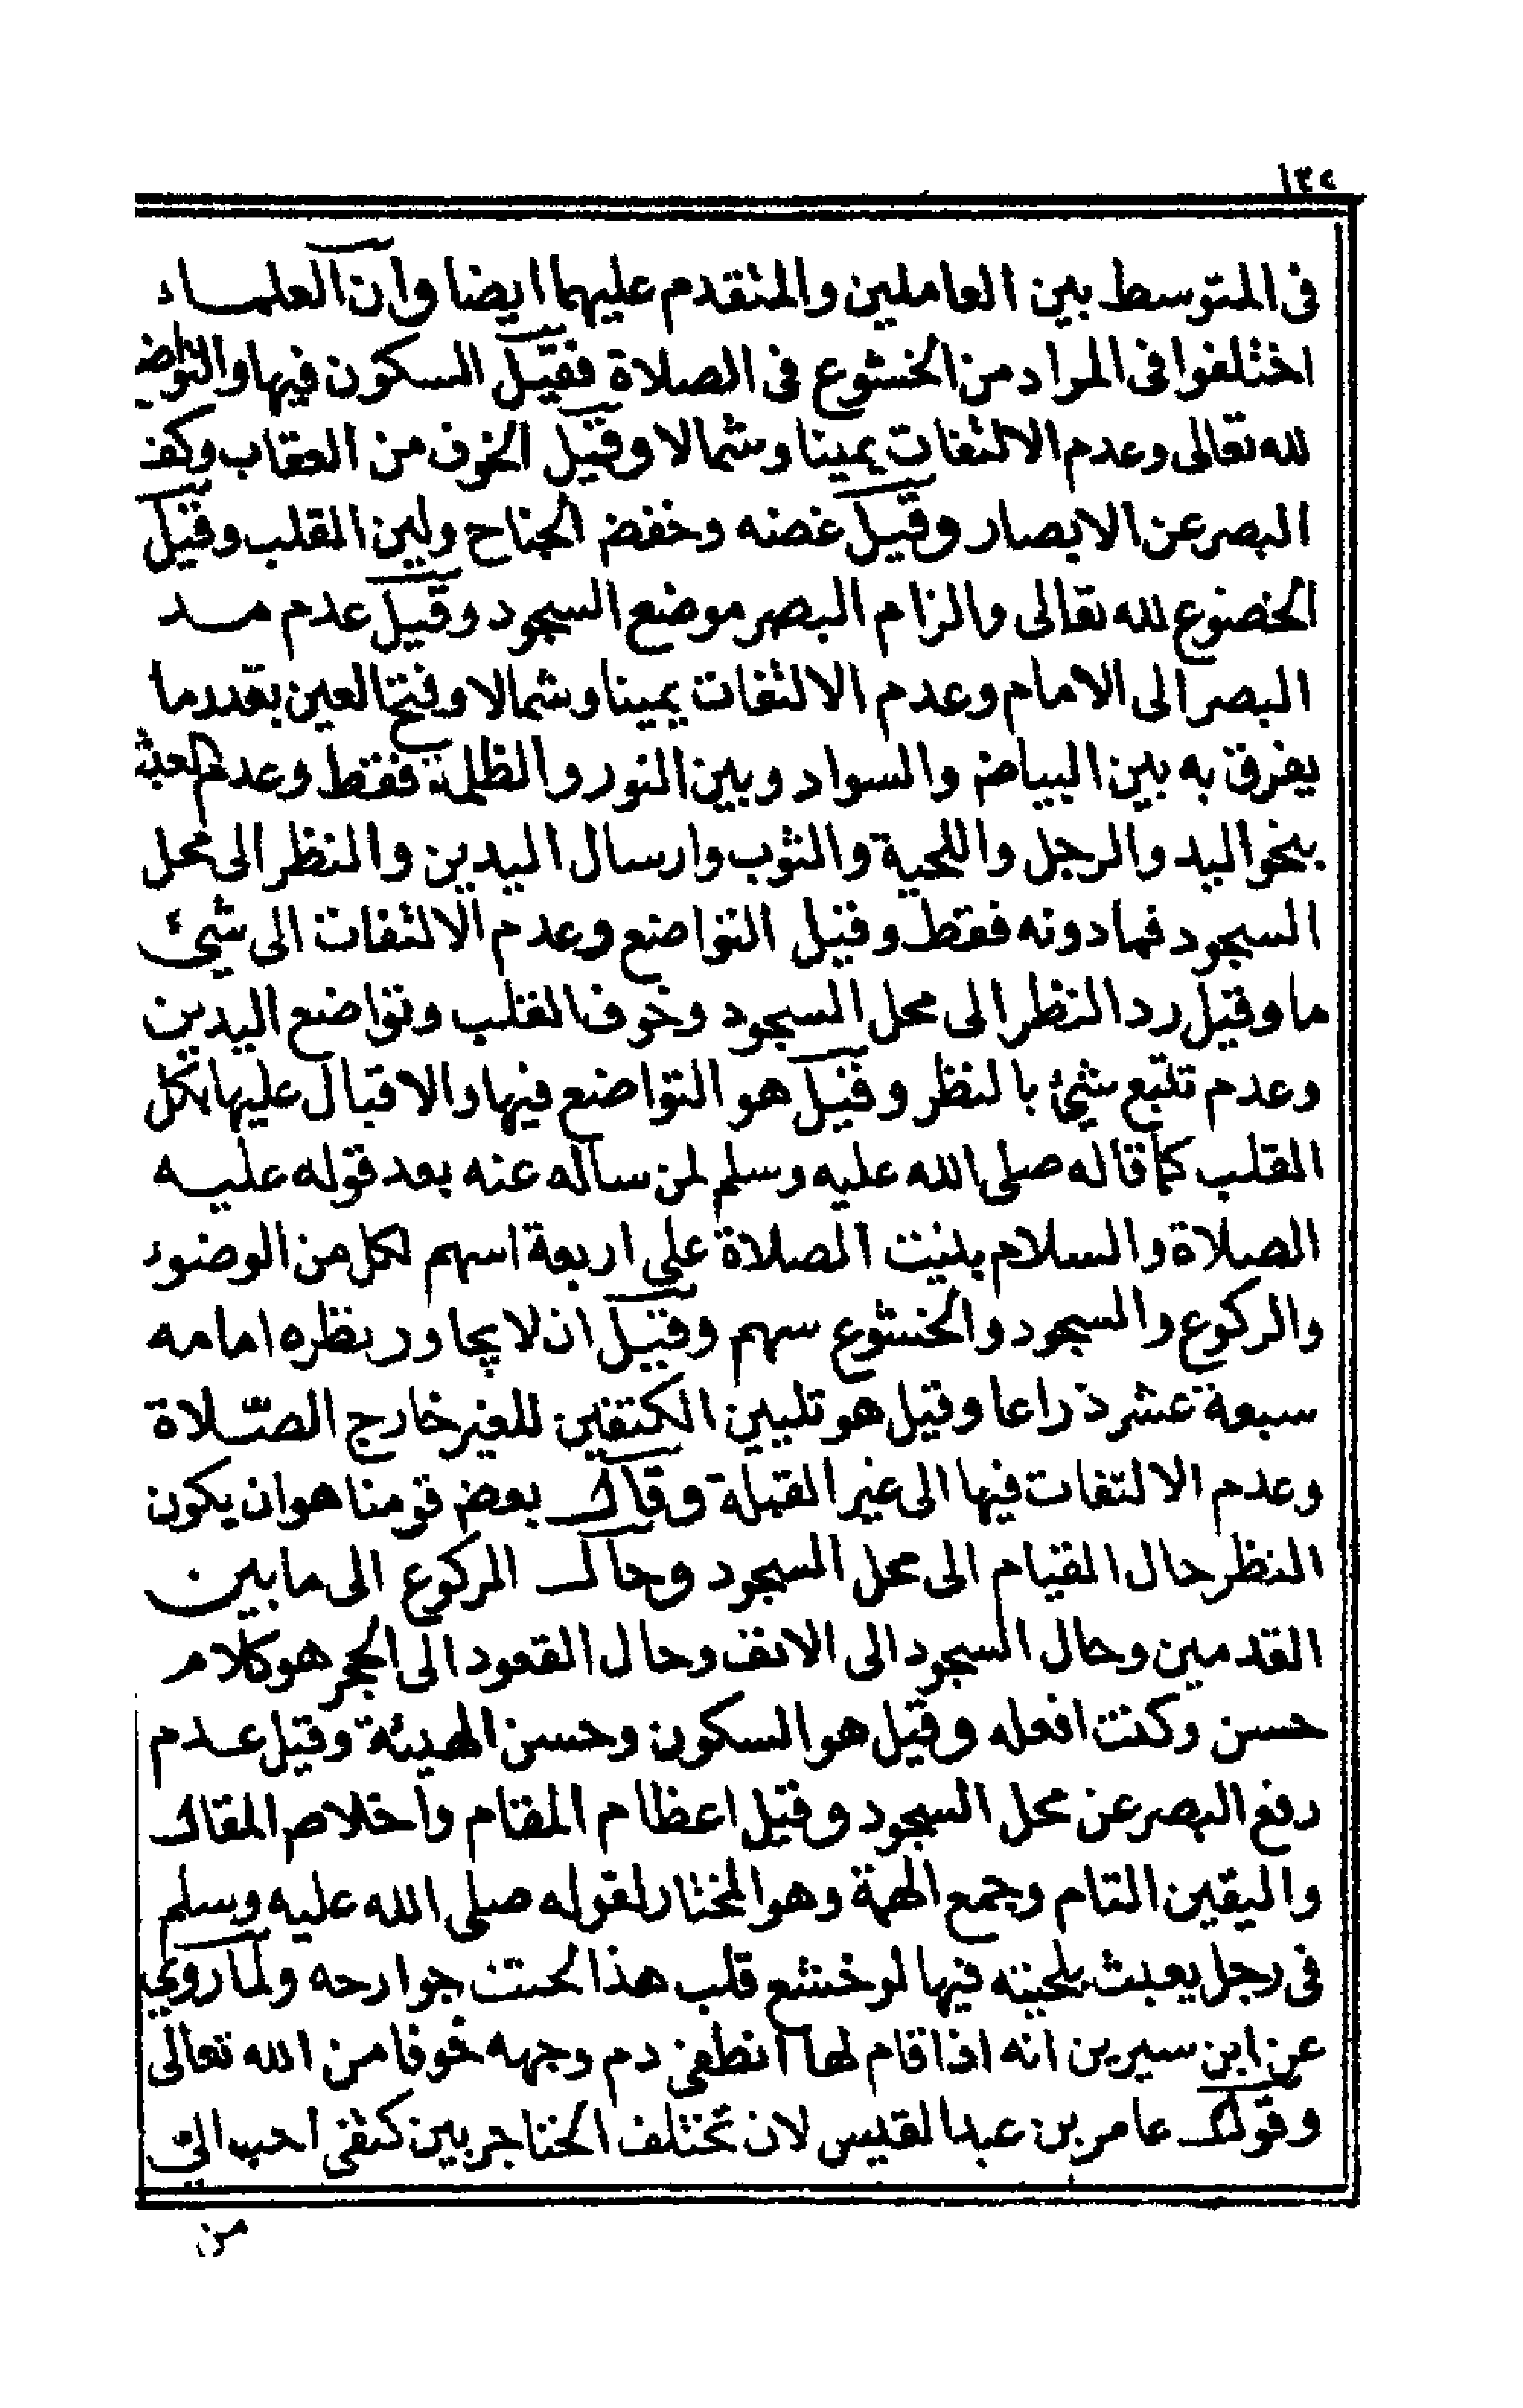 ١٣٤
فى المتوسط بين العاملين والمتقدم عليهما ايضا وان العلماء
اختلفوا فى المراد من الخشوع فى الصلاة فقيل السكون فيها والتواضع
لله تعالى وعدم الالتفات يمينا وشمالا وقيل الخوف من العقاب وكف
البصر عن الابصار وقيل غضه وخفض الجناح ولين القلب وقيل
الخضوع لله تعالى والزام البصر موضع السجود وقيل عدم مد
البصر الى الامام وعدم الالتفات يمينا وشمالا وفتح العين بقدر ما
يفرق به بين البياض والسواد وبين النور والظلمة فقط وعدم العبث
بنحو اليد والرجل واللحية والثوب وارسال اليدين والنظر الى محل
السجود فما دونه فقط وقيل التواضع وعدم الالتفات الى شئ
ما وقيل رد النظر الى محل السجود وخوف القلب وتواضع اليدين
وعدم تتبع شئ بالنظر وقيل هو التواضع فيها والاقبال عليها بكل
القلب كما قاله صلى الله عليه وسلم لمن ساله عنه بعد قوله عليه
الصلاة والسلام بنيت الصلاة على اربعة اسهم لكل من الوضوء
والركوع والسجود والخشوع سهم وقيل ان لا يجاور بنظره امامه
سبعة عشر ذراعا وقيل هو تليين الكتفين للغير خارج الصّلاة
وعدم الالتفات فيها الى غير القبلة وقال بعض قومنا هو ان يكون
النظر حال القيام الى محل السجود وحال الركوع الى ما بين
القدمين وحال السجود الى الانف وحال القعود الى الحجر هو كلام
حسن وكنت افعله وقيل هو السكون وحسن الهيئة وقيل عدم
رفع البصر عن محل السجود وقيل اعظام المقام واخلاص المقال
واليقين التام وجمع الهمة وهو المختار لقوله صلى الله عليه وسلم
فى رجل يعبث بلحيته فيها لو خشع قلب هذا لخشت جوارحه ولما روي
عن ابن سيرين انه اذا قام لها انطفئ دم وجهه خوفا من الله تعالى
وقول عامر بن عبد القيس لان تختلف الخناجر بين كتفى احب اليّ
من